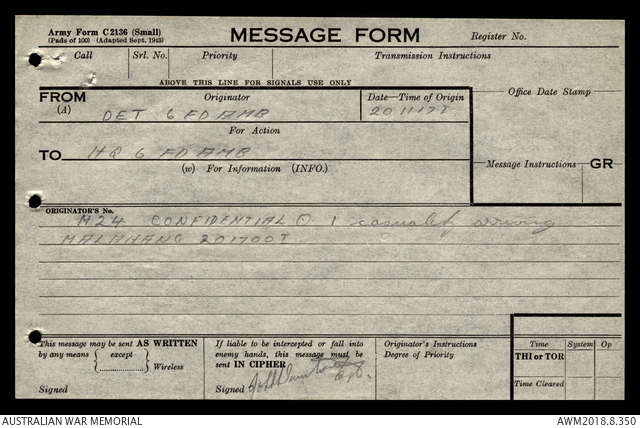 Army Form C2136 (Small)
(Pads of 100) (Adapted Sept. 1943)
MESSAGE FORM
Register No.
Call Srl. No. Priority Transmission Instructions
ABOVE THIS LINE FOR SIGNALS USE ONLY
FROM
(A)
Originator
DET 6 FD AMB
Date—Time of Origin
201117I
Office Date Stamp
For Action
TO HQ 6 FD AMB
(w) For Information (INFO.)
Message Instructions GR
ORIGINATOR'S No.
M24 CONFIDENTIAL 1 casualty arriving
MALAHANG 201700I
This message may be sent AS WRITTEN
by any means except
Wireless
Signed
If liable to be intercepted or fall into
enemy hands, this message must be
sent IN CIPHER
Signed
Originator's Instructions
Degree of Priority
Time System Op
THI or TOR
Time Cleared
AUSTRALIAN WAR MEMORIAL AWM2018.8.350